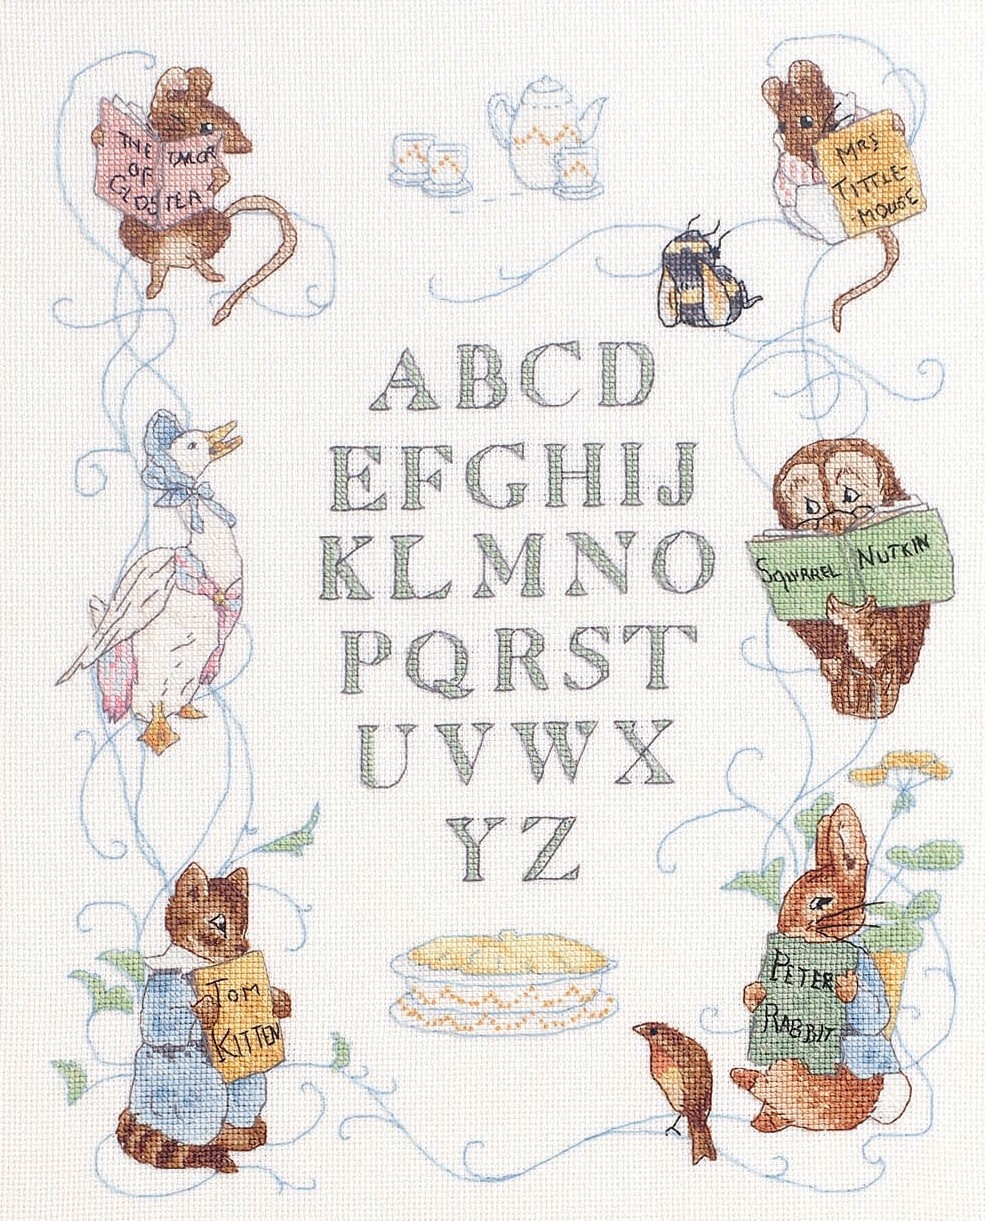 THE TAILOR
OF
GLOSTER
MRS
TITTLE-
-MOUSE
ABCD
EFGHIJ
KLMNO
PQRST
UVWX
YZ
SQUIRREL NUTKIN
TOM
KITTEN
PETER
RABBIT